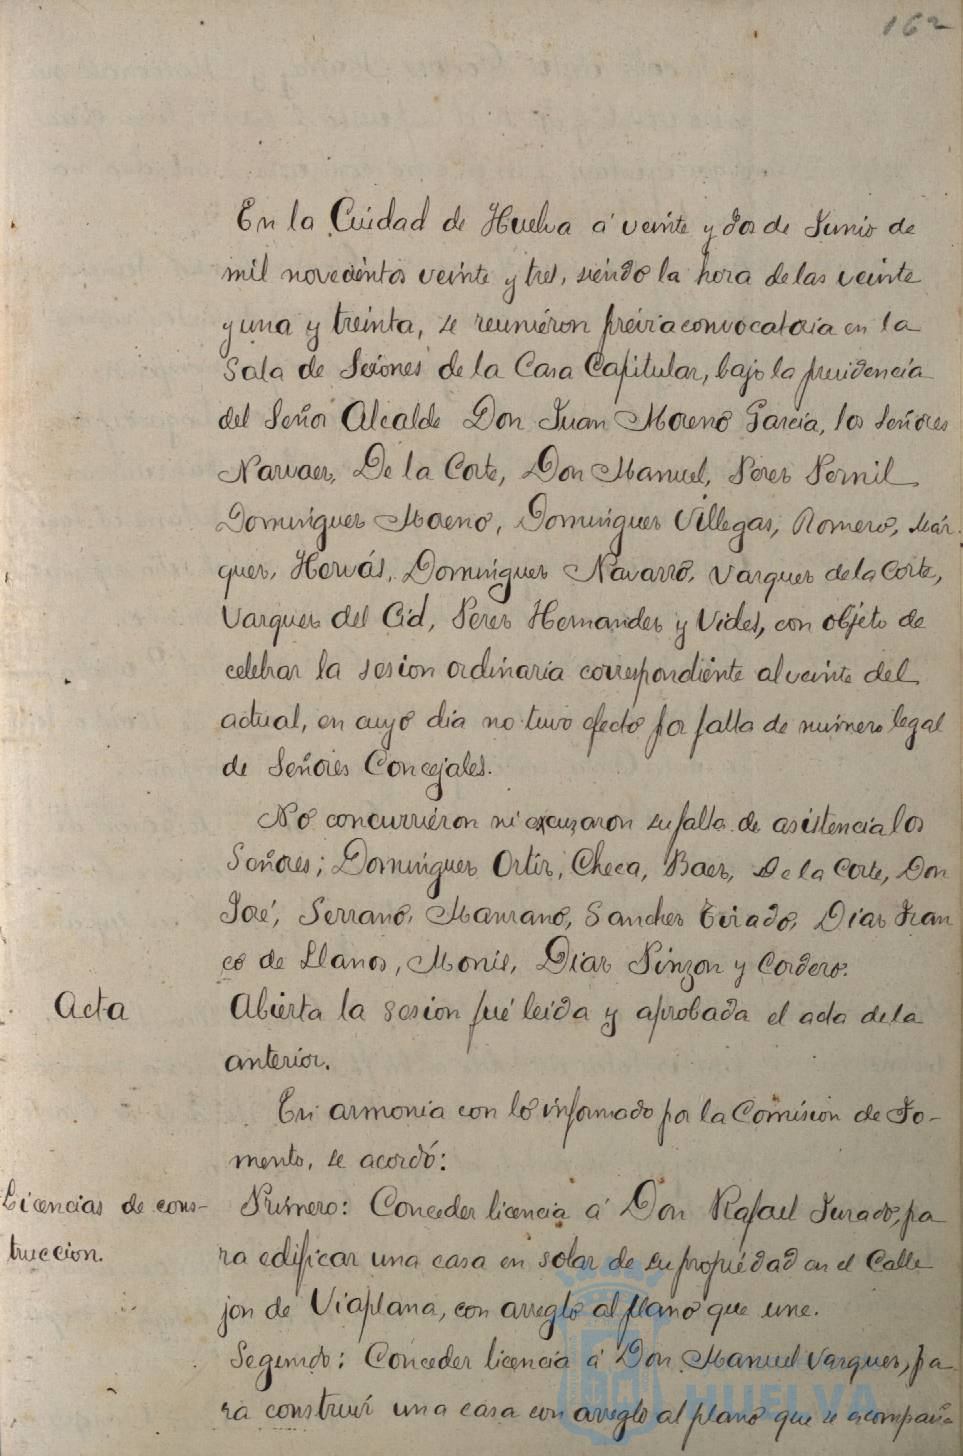 162
En la Ciudad de Huelva á veinte y dos de Junio de
mil novecientos veinte y tres, siendo la hora de las veinte
y una y treinta, se reunieron previa convocatoria en la
Sala de Sesiones de la Casa Capitular, bajo la presidencia
del Señor Alcalde Don Juan Moreno Garcia, los Señores
Narvaez, De la Corte, Don Manuel, Perez Pernil
Dominguez Moreno, Dominguez Villegas, Romero, Már-
quez, Hervás, Dominguez Navarro, Vazquez de la Corte,
Vazquez del Cid, Perez Hernandez y Vides, con objeto de
celebrar la sesion ordinaria correspondiente al veinte del
actual, en cuyo dia no tuvo efecto por falta de número legal
de Señores Concejales.
No concurrieron ni excuzaron su falta de asistencia los
Señores; Dominguez Ortiz, Checa, Baez, De la Corte, Don
José, Serrano, Manzano, Sanchez Tirado, Diaz Fran
co de Llanos, Monis, Diaz Pinzon y Cordero.
Acta Abierta la sesion fué leida y aprobada el acta de la
anterior.
En armonia con lo informado por la Comision de Fo-
mento, se acordó:
Licencias de cons- Primero: Conceder licencia á Don Rafael Jurado, pa
truccion. ra edificar una casa en solar de su propiedad en el Calle
jon de Viaplana, con arreglo al plano que une.
Segundo: Conceder licencia á Don Manuel Vazquez, pa
ra construir una casa con arreglo al plano que se acompaña
HUELVA